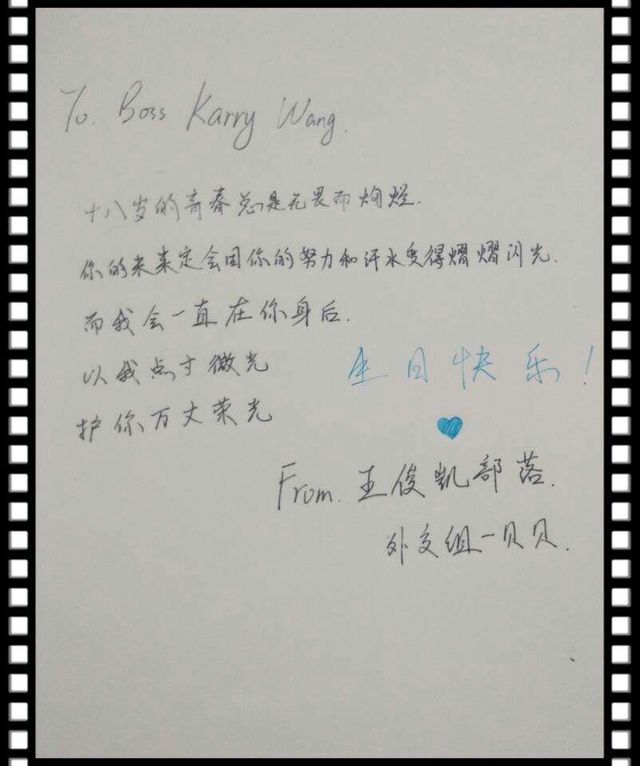 To. Boss Karry Wang.
十八岁的青春总是无畏而炽烂.
你的未来定会因你的努力和汗水变得熠熠闪光.
而我会一直在你身后.
以我点寸微光
护你万丈荣光
生日快乐!
From. 王俊凯部落.
外交组一贝贝.